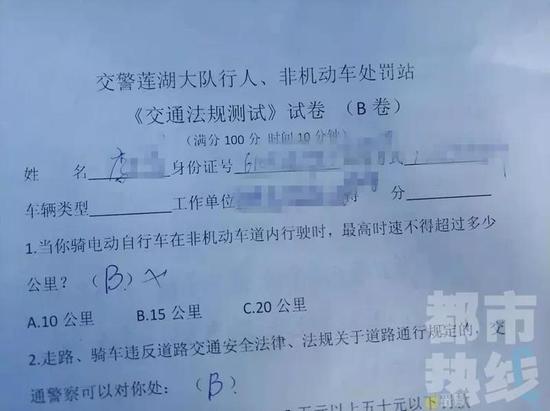 交警莲湖大队行人、非机动车处罚站
《交通法规测试》试卷 （B 卷）
（满分 100 分 时间 10 分钟）
姓 名 身份证号 式
车辆类型 工作单位 得 分
1.当你骑电动自行车在非机动车道内行驶时，最高时速不得超过多少
公里？（B）×
A.10 公里 B.15 公里 C.20 公里
2.走路、骑车违反道路交通安全法律、法规关于道路通行规定的，交
通警察可以对你处：（B）
五元以上五十元以下罚款
都市
热线